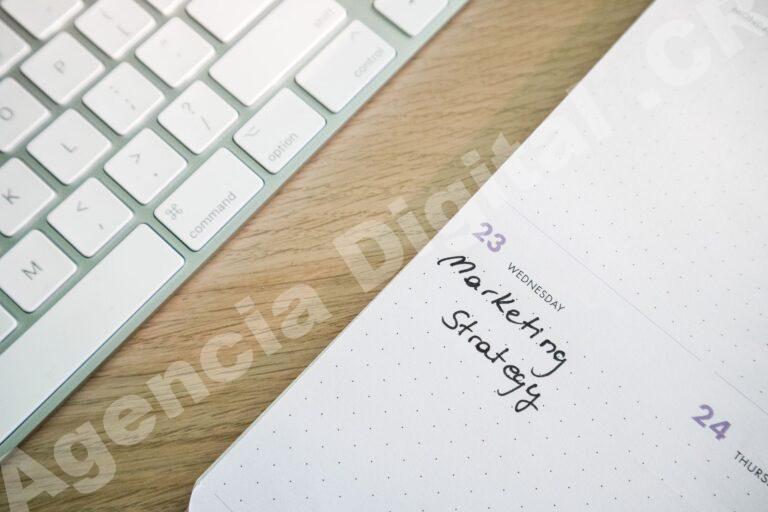 shift
P
control
O
L
option
K
command
M
Agencia Digital .CR
MONDAY
23
WEDNESDAY
Marketing
Strategy
24
THURS